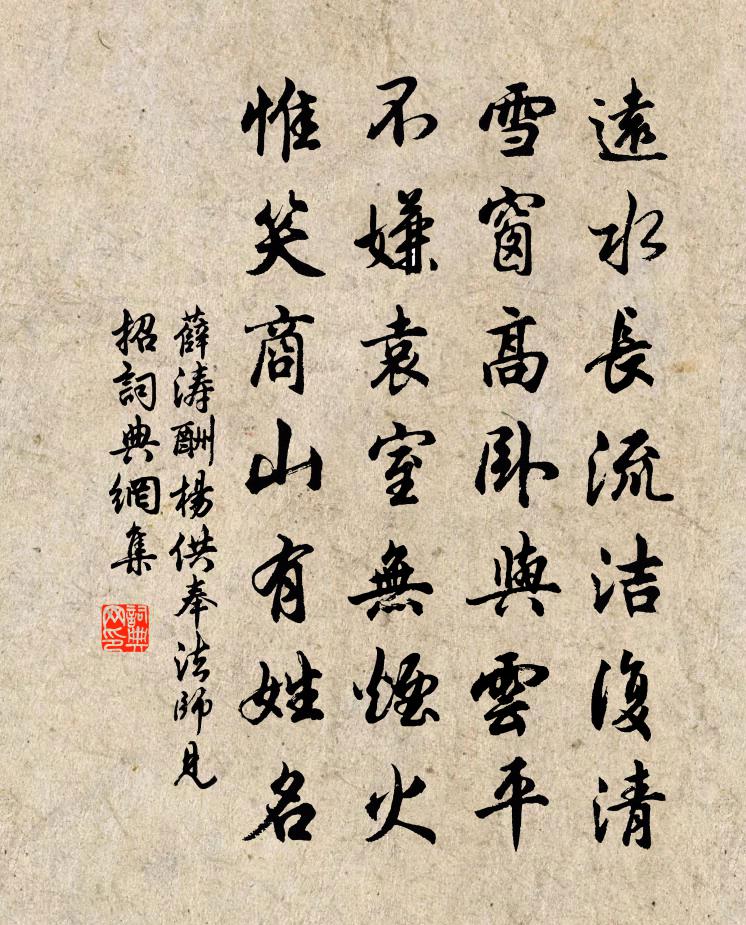 遠水長流洁復清
雪窗高臥與雲平
不嫌袁室無煙火
惟笑商山有姓名
薛濤酬楊供奉法師見
招詞典網集
詞典
网印